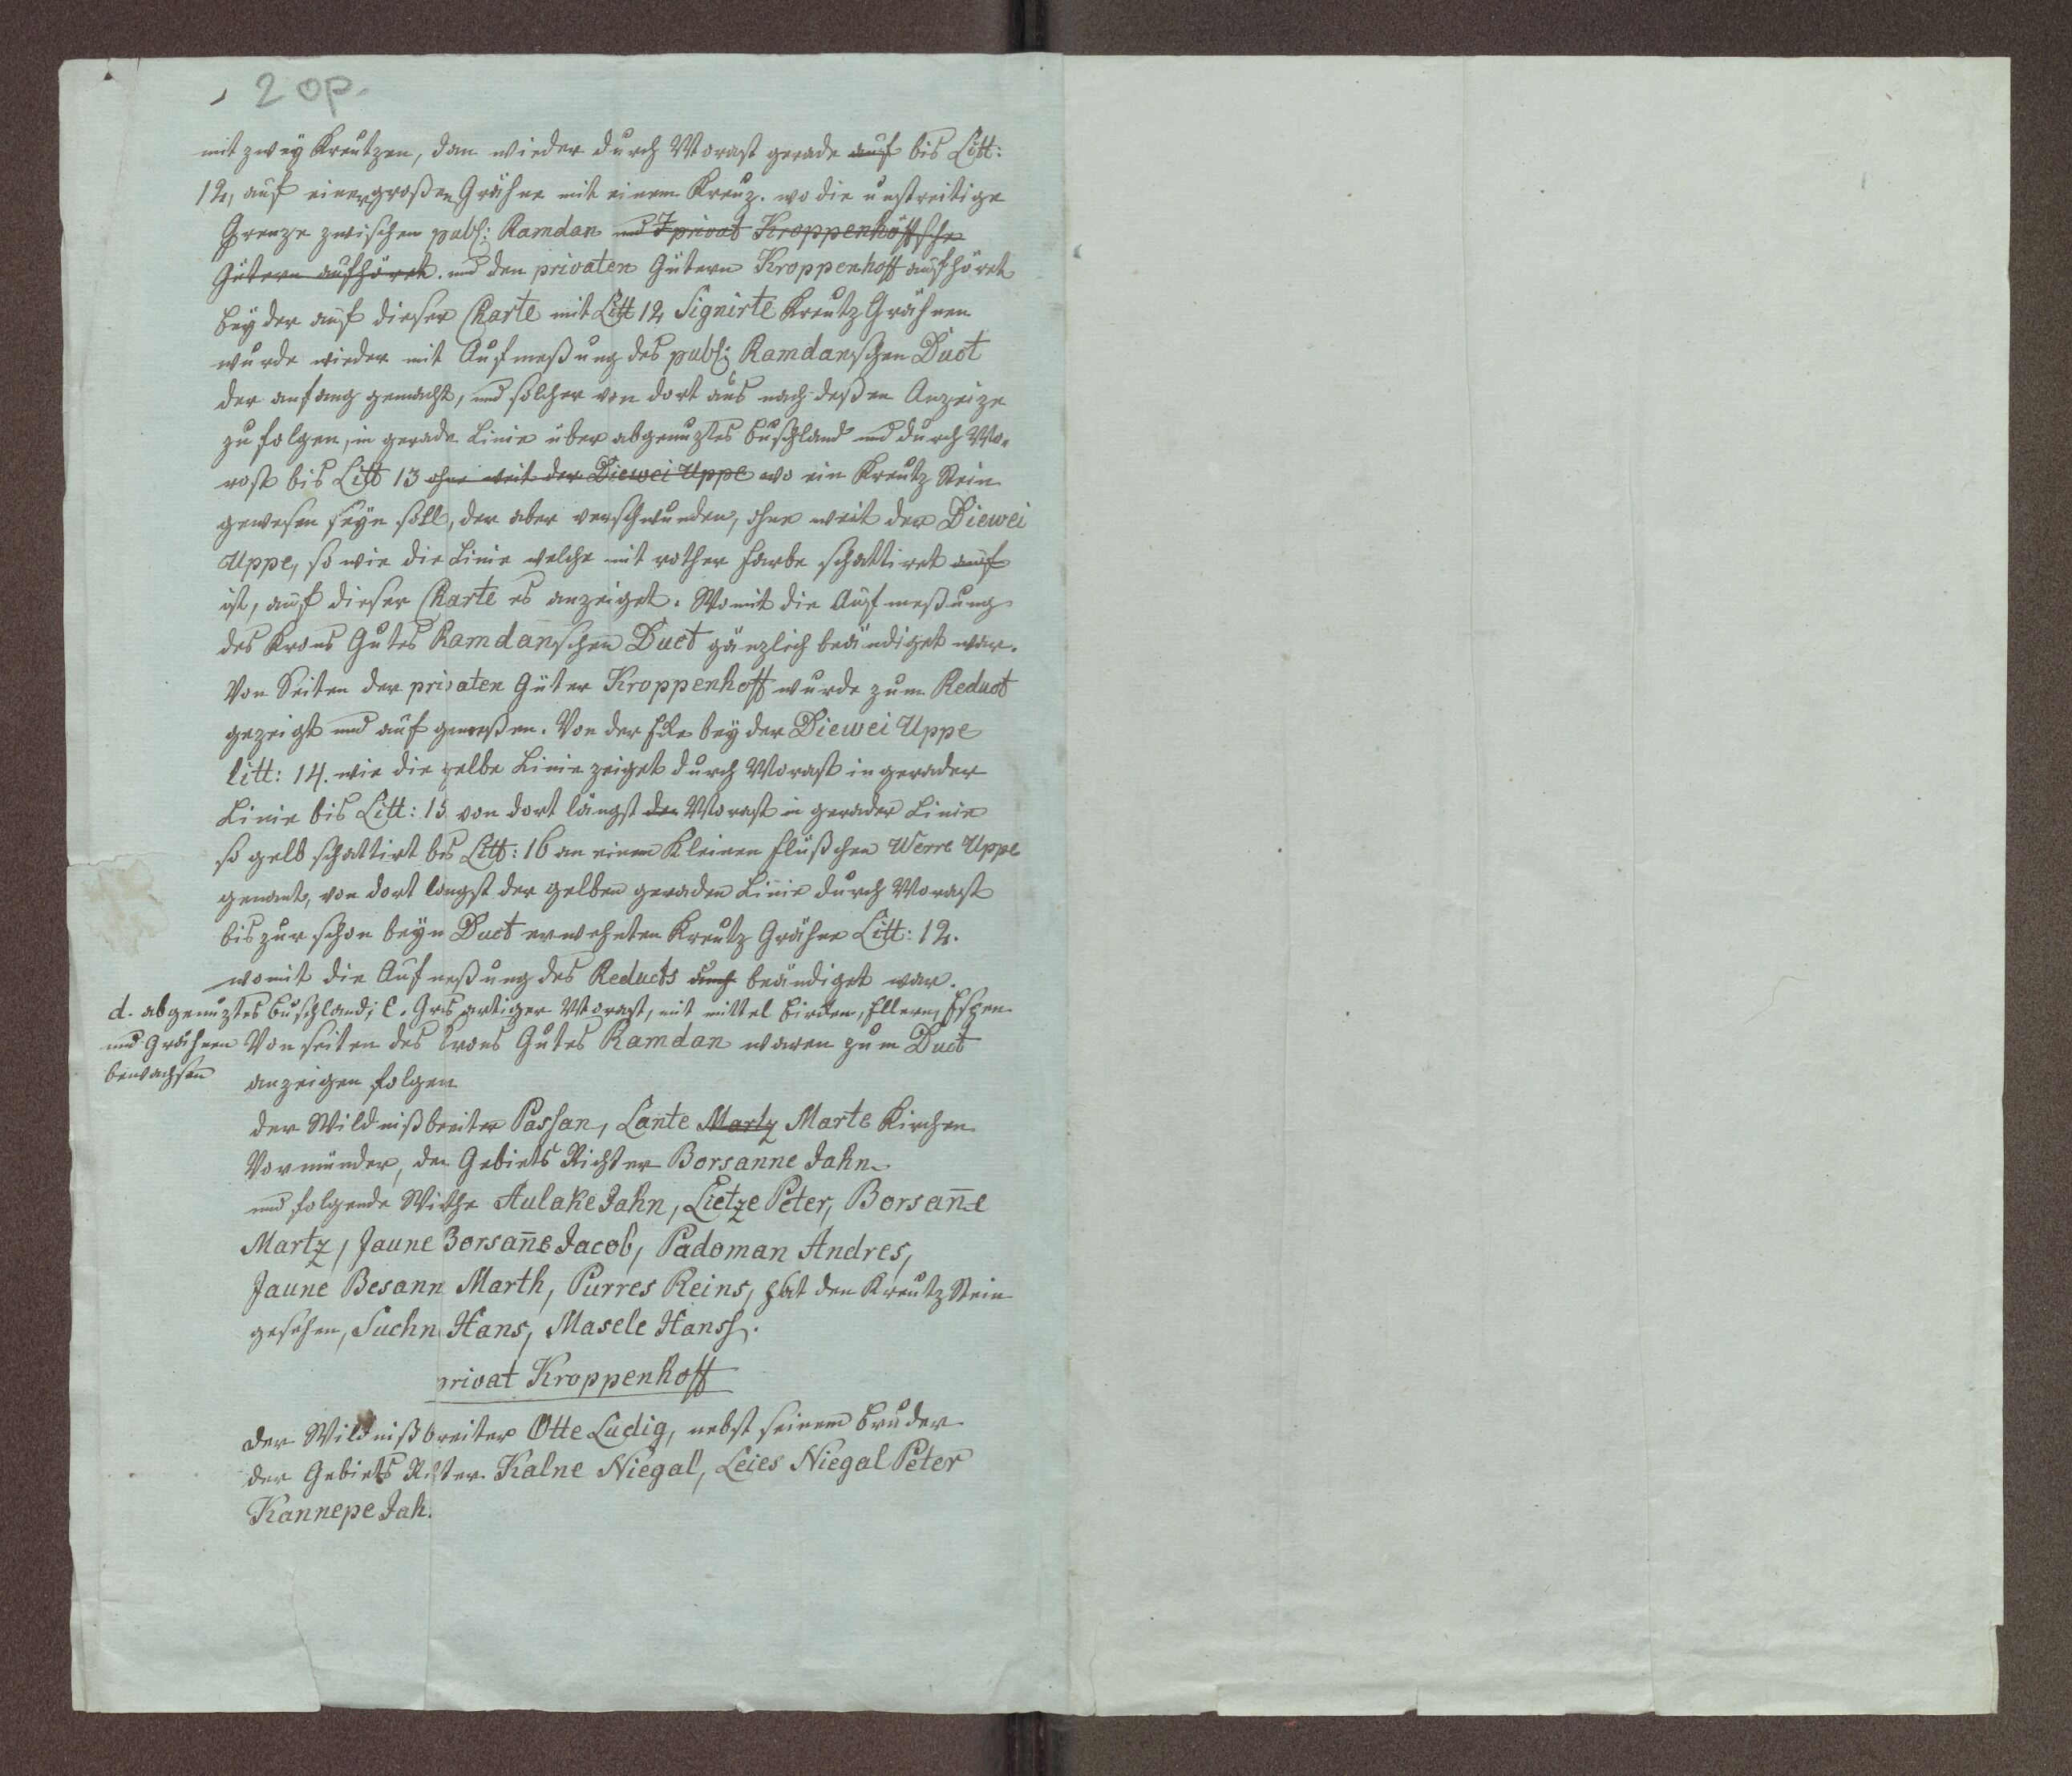 2 op.
mit zweÿ Kreutzen, dan wieder durch Morast gerade auf bis Litt:
12, auf einer großen Grähne mit einem Kreuz. wo die unstreitige
Grenze zwischen publ: Ramdan und privat Kroppenhoffsche
Gütern aufhöret. und den privaten Gütern Kroppenhoff aufhöret
beÿ der auf dieser Charte mit Litt 12 Signirte Kreutz Grähnen
wurde wieder mit Aufmeßung des publ: Ramdanschen Duct
der anfang gemacht, und solcher von dort aus nach deßen Anzeize
zu folgen, in gerade Linie über abgenuztes Buschland und durch Mo-
rast bis Litt 13 ohne weit der Diewei Uppe wo ein Kreutz Stein
gewesen seÿn soll, der aber verschwunden, ohne weit der Diewei
Uppe, so wie die Linie welche mit rother Farbe schattiret auf
ist, auf dieser Charte es anzeiget. Womit die Aufmeßung
des Krons Gutes Ramdanschen Duct gänzlich beändiget war.
Von Seiten der privaten Güter Kroppenhoff wurde zum Reduct
gezeigt und aufgemeßen. Von der Eke beÿ der Diewei Uppe
litt: 14. wie die gelbe Linie zeiget durch Morast in gerader
Linie bis Litt: 15 von dort längst den Morast in gerader Linie
so gelb schattirt bis Litt: 16 an einem Kleinen Flüßchen Werre Uppe
genant, von dort längst der gelben geraden Linie durch Morast
bis zur schon beÿn Duct erwehnten Kreutz Grähne Litt: 12.
womit die Aufmeßung des Reducts durch beändiget war.
d. abgenuztes Buschland; e. Gras artiger Morast, mit mittel Birken, Ellern, Espen
und Grähnen
bewachsen
Von seiten des Krons Gutes Ramdan waren zum Duct
anzeigen folgen
der Wildnißbereiter Passan, Lante Martz Marte Kirchen
Vormünder, der Gebiets Richter Borsanne Jahn
und folgende Wirthe Aulake Jahn, Lietze Peter, Borsan̄e
Martz, Jaune Borsan̄e Jacob, Padoman Andres,
Jaune Besann Marth, Purres Reins, hat den Kreutz Stein
gesehen, Suchn Hans, Masele Hanss.
privat Kroppenhoff
der Wildnißbreiter Otte Ludig, nebst seinem Bruder
der Gebiets Richter Kalne Niegal, Leies Niegal Peter
Kannepe Jah.